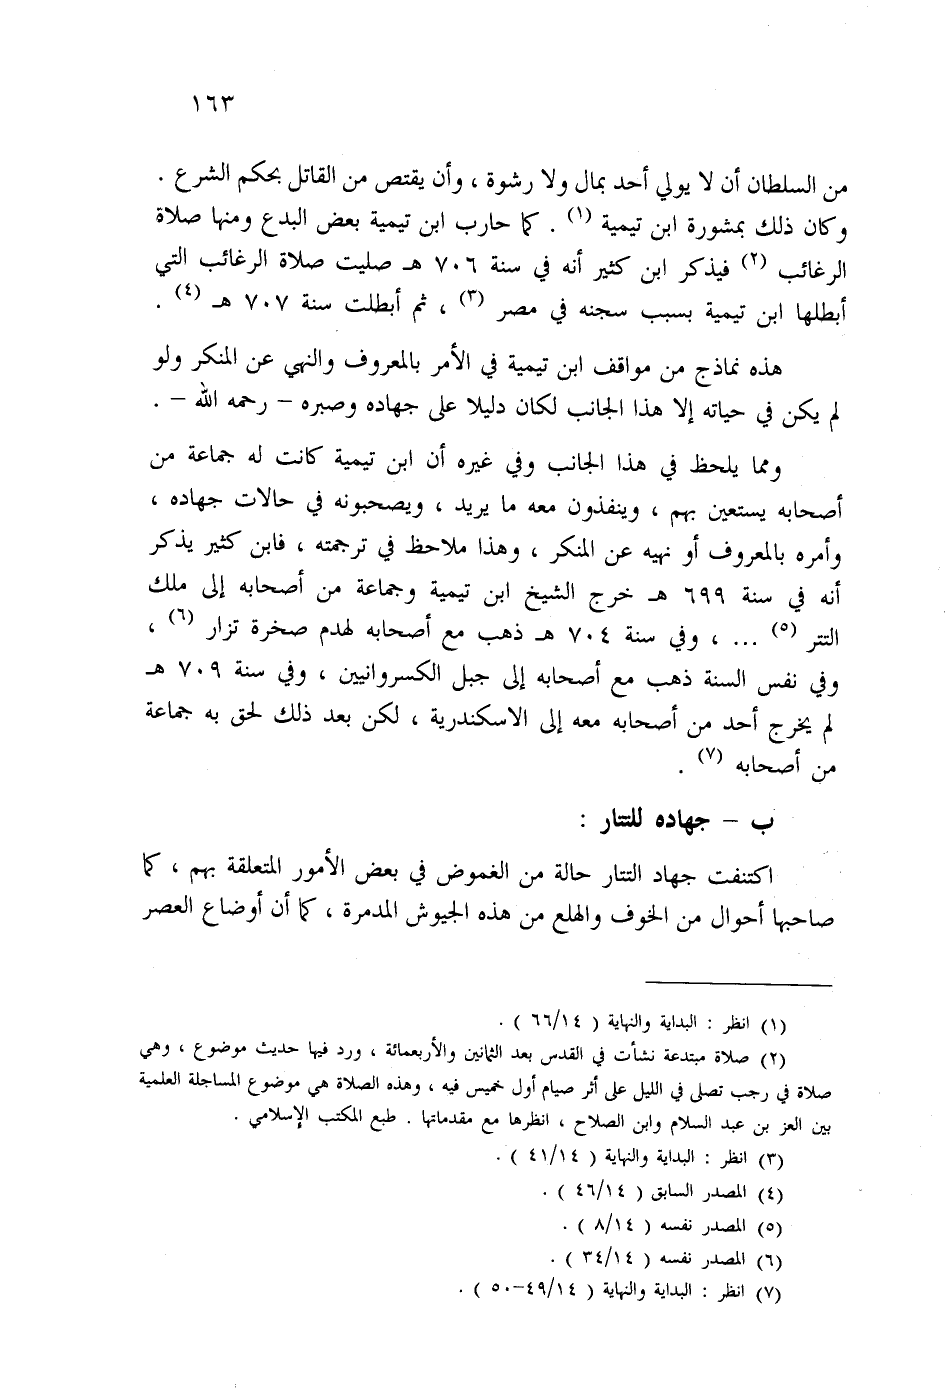 ١٦٣
من السلطان أن لا يولي أحد بمال ولا رشوة ، وأن يقتص من القاتل بحكم الشرع .
وكان ذلك بمشورة ابن تيمية (١) . كما حارب ابن تيمية بعض البدع ومنها صلاة
الرغائب (٢) فيذكر ابن كثير أنه في سنة ٧٠٦ هـ صليت صلاة الرغائب التي
أبطلها ابن تيمية بسبب سجنه في مصر (٣) ، ثم أبطلت سنة ٧٠٧ هـ (٤) .
هذه نماذج من مواقف ابن تيمية في الأمر بالمعروف والنهي عن المنكر ولو
لم يكن في حياته إلا هذا الجانب لكان دليلا على جهاده وصبره - رحمه الله - .
ومما يلحظ في هذا الجانب وفي غيره أن ابن تيمية كانت له جماعة من
أصحابه يستعين بهم ، وينفذون معه ما يريد ، ويصحبونه في حالات جهاده ،
وأمره بالمعروف أو نهيه عن المنكر ، وهذا ملاحظ في ترجمته ، فابن كثير يذكر
أنه في سنة ٦٩٩ هـ خرج الشيخ ابن تيمية وجماعة من أصحابه إلى ملك
التتر (٥) ... ، وفي سنة ٧٠٤ هـ ذهب مع أصحابه لهدم صخرة تزار (٦) ،
وفي نفس السنة ذهب مع أصحابه إلى جبل الكسروانيين ، وفي سنة ٧٠٩ هـ
لم يخرج أحد من أصحابه معه إلى الاسكندرية ، لكن بعد ذلك لحق به جماعة
من أصحابه (٧) .
ب - جهاده للتتار :
اكتنفت جهاد التتار حالة من الغموض في بعض الأمور المتعلقة بهم ، كما
صاحبها أحوال من الخوف والهلع من هذه الجيوش المدمرة ، كما أن أوضاع العصر
(١) انظر : البداية والنهاية ( ٦٦/١٤ ) .
(٢) صلاة مبتدعة نشأت في القدس بعد الثمانين والأربعمائة ، ورد فيها حديث موضوع ، وهي
صلاة في رجب تصلى في الليل على أثر صيام أول خميس فيه ، وهذه الصلاة هي موضوع المساجلة العلمية
بين العز بن عبد السلام وابن الصلاح ، انظرها مع مقدماتها . طبع المكتب الإسلامي .
(٣) انظر : البداية والنهاية ( ٤١/١٤ ) .
(٤) المصدر السابق ( ٤٦/١٤ ) .
(٥) المصدر نفسه ( ٨/١٤ ) .
(٦) المصدر نفسه ( ٣٤/١٤ ) .
(٧) انظر : البداية والنهاية ( ٤٩/١٤-٥٠ ) .